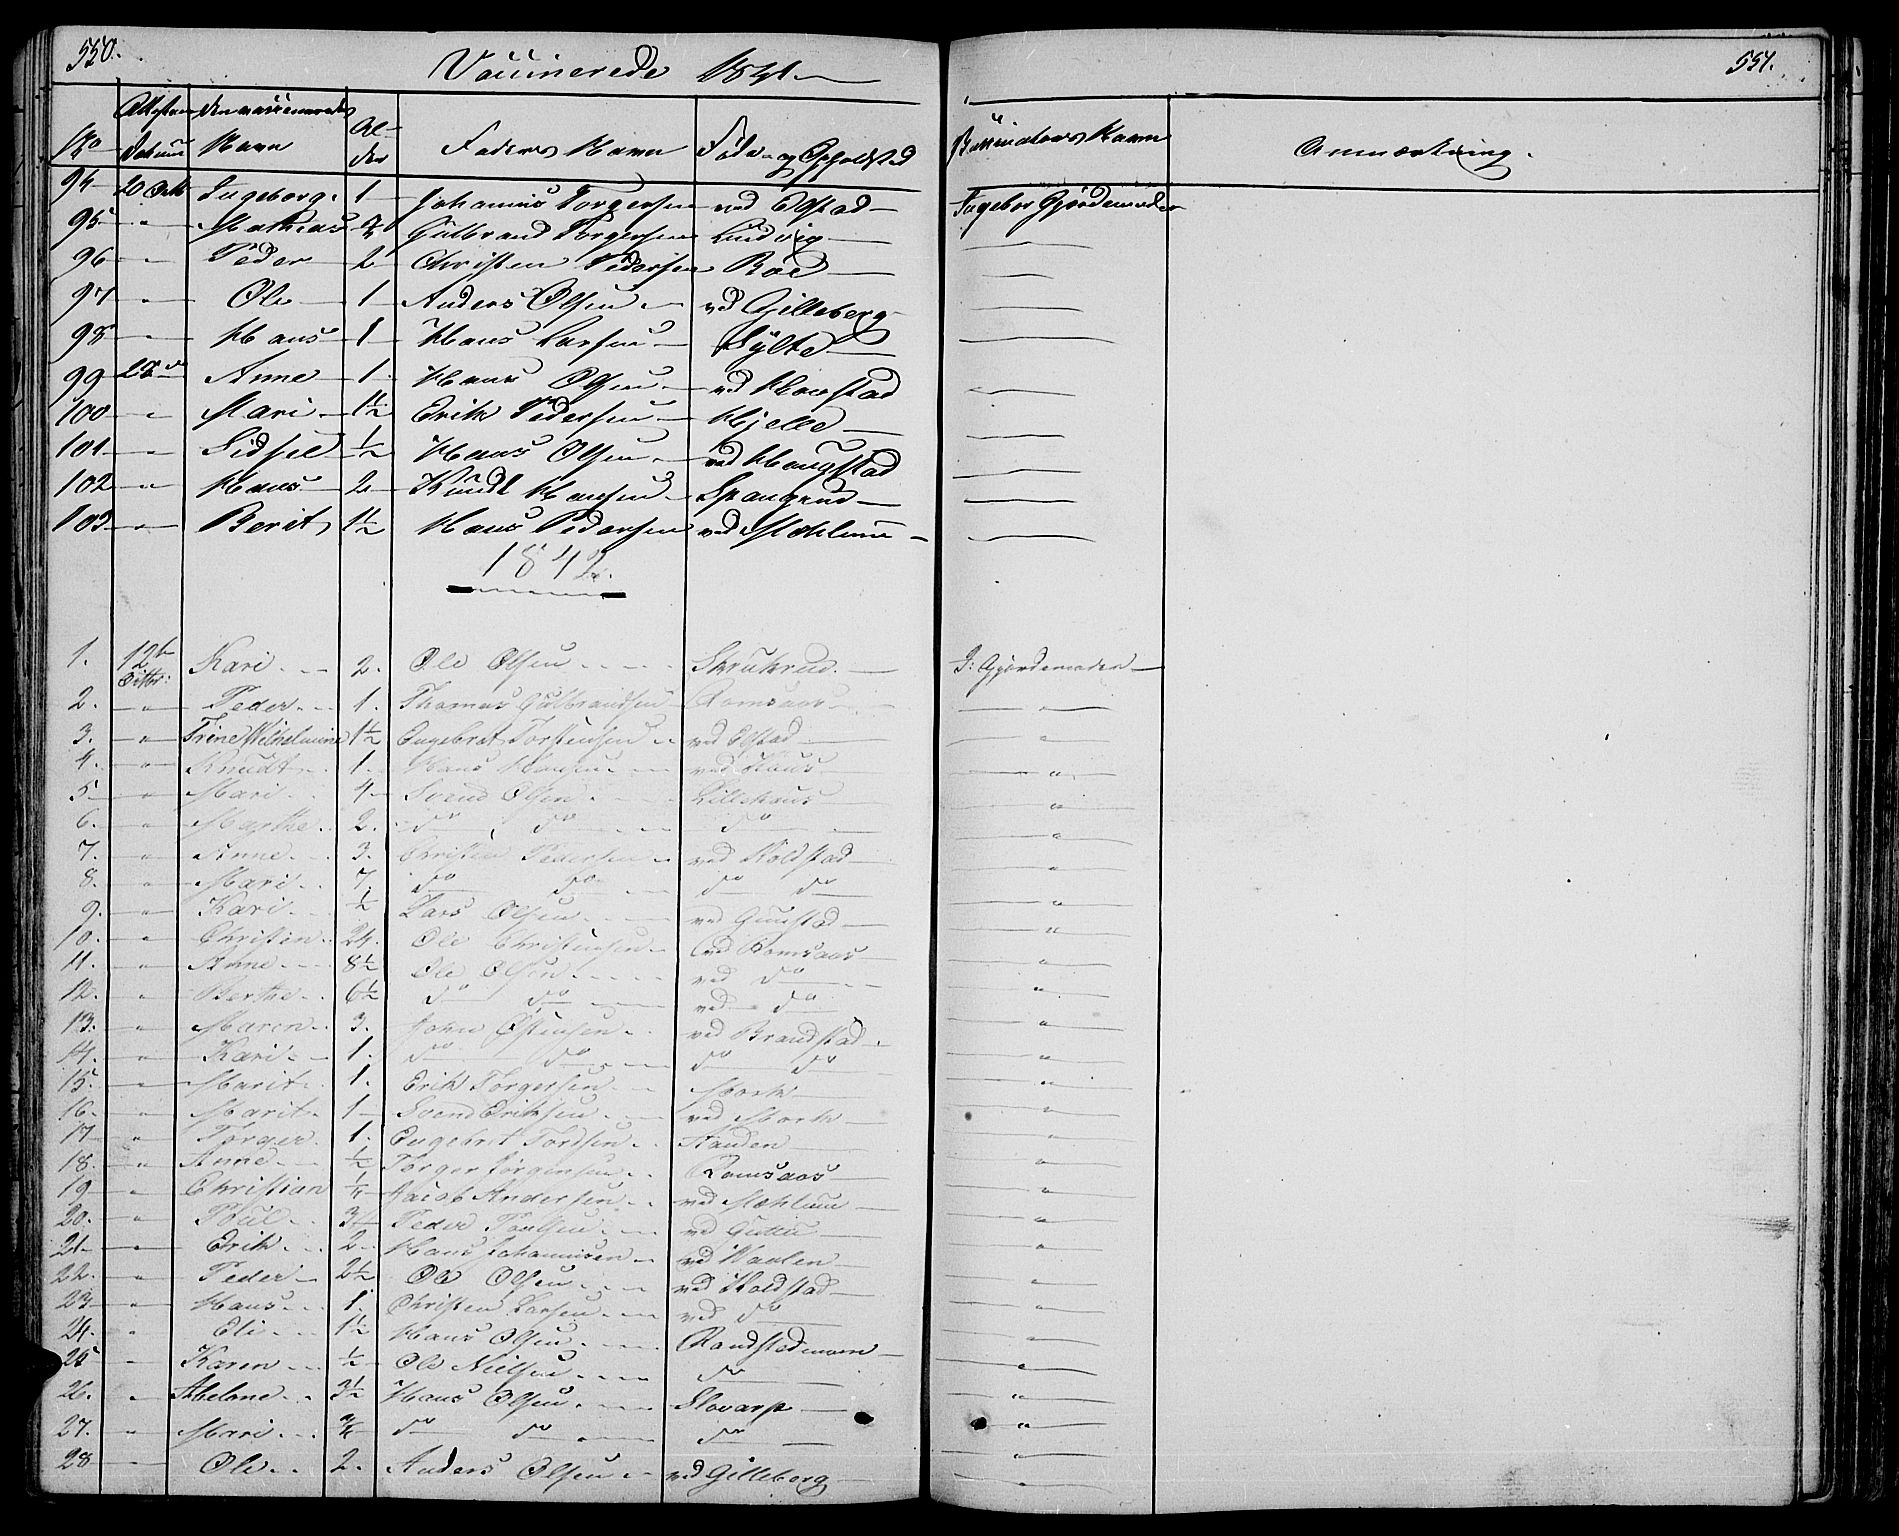 550.
Vaccinerede 1841.
551.
No Attestens Datum Den vaccineredes Navn Alder Faders Navn Føde- og Opholdsted Vaccinateurs Navn Anmærkning.
94 20 Octb Ingeborg. 1 Johannes Torgersen ved Elstad Ingebor Gjordemoder
95 " Mathias 3/4 Gulbrand Torgersen Lundvig
96 " Peder 2 Christen Pedersen Roe
97 " Ole 1 Anders Olsen ved Gilleberg
98 " Hans 1 Hans Larsen Sylte
99 Anne 1 Hans Olsen ved
100 " Mari 1½ Erik Pedersen Kjelle
101 " Sidsel ½ Hans Olsen ved Haugstad
102 " Hans 2 Knudt Hansen Spangrud
103 " Berit 1½ Hans Pedersen ved Mæhlum
1842.
1. 12te Octbr: Kari 2. Ole Olsen Skrukrud I: Gjordemoder
2. " Peder 1. Thomas Gulbrandsen Romsaas "
3. " Trine Wilhelmine 1½ Engebret Torstensen ved Elstad "
4. " Knudt 1. Hans Hansen ved "
5 " Mari 4 Svend Olsen Lillehaus "
6. " Marthe 2. do do do "
7. " Anne 3. Christen Pedersen ved Koldstad "
8. " Mari 7 do do do do "
9. " Kari ½ Lars Olsen ved "
10. " Christen 24. Ole Christensen ved Romsaas "
11. " Anne 8½ Ole Olsen ved do "
12. " Berthe 6½ do do ved do "
13. " Maren 3. John Østensen ved Brandstad "
14. " Kari 1. do do do do "
15. " Marit 1. Erik Torgersen Mork "
16. " Marit 1 Svend Eriksen ved Mork "
17 " Torger 1. Engebret Tordsen Randen "
18. " Anne ½ Torger Jørgensen Romsaas "
19 " Christian ¼ Jacob Andersen ved Mæhlum "
20. " Poul Peder Poulsen ved "
21. " Erik 2 Hans Johannesen ved Haalen "
22. " Peder 2½ Ole Olsen ved Koldstad "
23 " Hans 1. Christen Larsen ved do "
24. " Eli 1½ Hans Olsen "
25 " Karen ½ Ole Nielsen do "
26. " Abelone 3½ Hans Olsen Slovarp "
27. " Mari ¾ do do do "
28 " Ole 2. Anders Olsen ved Gilleberg "